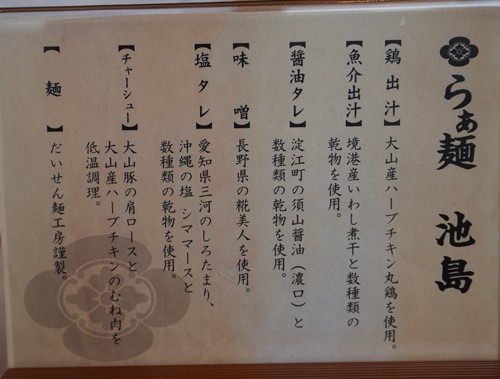 らぁ麺 池島
【鶏出汁】大山産ハーブチキン丸鶏を使用。
【魚介出汁】境港産いわし煮干と数種類の
乾物を使用。
【醤油タレ】淀江町の須山醤油（濃口）と
数種類の乾物を使用。
【味噌】長野県の糀美人を使用。
【塩タレ】愛知県三河のしろたまり、
沖縄の塩 シママースと
数種類の乾物を使用。
【チャーシュー】大山豚の肩ロースと
大山産ハーブチキンのむね肉を
低温調理。
【麺】だいせん麺工房謹製。